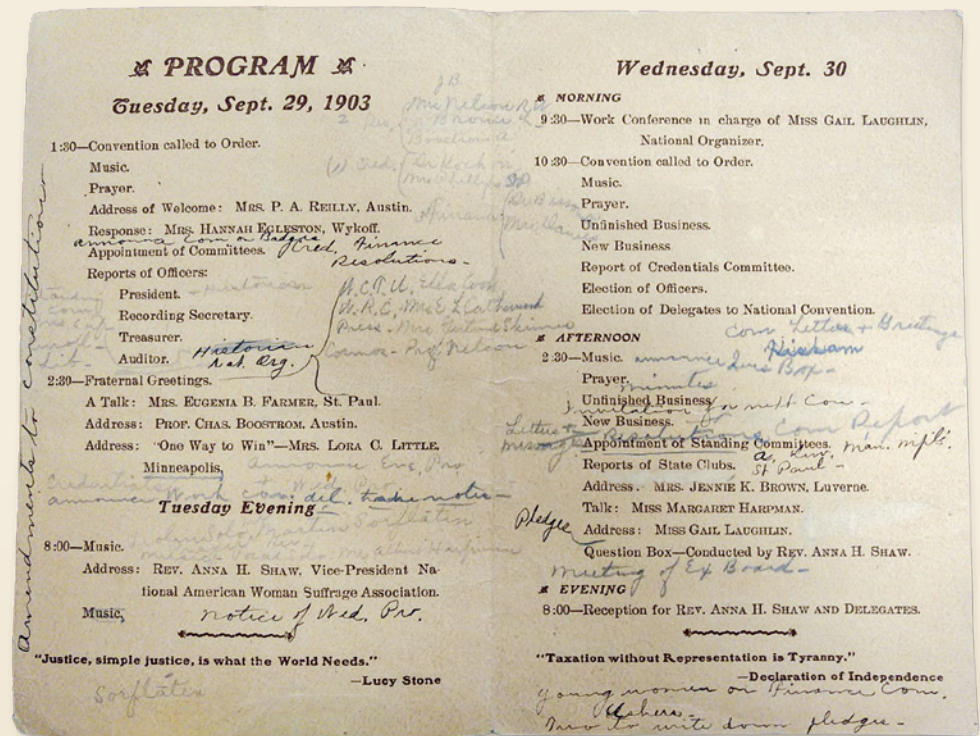 PROGRAM
Tuesday, Sept. 29, 1903
1:30—Convention called to Order.
Music.
Prayer.
Address of Welcome: MRS. P. A. REILLY, Austin.
Response: MRS. HANNAH EGLESTON, Wykoff.
announce Com on Badges
Appointment of Committees. Cred, Finance
Resolutions-
Reports of Officers:
President. - Historian
Recording Secretary.
Treasurer.
Auditor. Historian
Nat. Org.
W.C.T.U. Ella Cook
W.R.C. Mrs E L Catherwood
Press - Mrs Gertrude Skinner
Cosmos - Prof Nelson
2:30—Fraternal Greetings.
A Talk: MRS. EUGENIA B. FARMER, St. Paul.
Address: PROF. CHAS. BOOSTROM, Austin.
Address: "One Way to Win"—MRS. LORA C. LITTLE,
Minneapolis, announce Eve, Pro
+ Wed. Pro
announce Work con. del. take notes-
Tuesday Evening
Sorflaten
8:00—Music.
Address: REV. ANNA H. SHAW, Vice-President Na-
tional American Woman Suffrage Association.
Music, notice of Wed. Pro.
"Justice, simple justice, is what the World Needs."
—Lucy Stone
Sorflaten
amendments to constitution
Wednesday, Sept. 30
MORNING
9:30—Work Conference in charge of MISS GAIL LAUGHLIN,
National Organizer.
10:30—Convention called to Order.
Music.
Prayer.
Unfinished Business.
New Business
Report of Credentials Committee.
Election of Officers.
Election of Delegates to National Convention.
Com. Letters + Greetings
AFTERNOON
2:30—Music. announce Ques Box-
Prayer.
minutes.
Unfinished Business
Invitation for next Con-
New Business.
Letters + messages Resolutions Com Report
Appointment of Standing Committees.
Reports of State Clubs. Man. Mpls.
St Paul-
Address. MRS. JENNIE K. BROWN, Luverne.
Talk: MISS MARGARET HARPMAN.
Pledges Address: MISS GAIL LAUGHLIN.
Question Box—Conducted by REV. ANNA H. SHAW.
Meeting of Ex Board-
EVENING
8:00—Reception for REV. ANNA H. SHAW AND DELEGATES.
"Taxation without Representation is Tyranny."
—Declaration of Independence
young women on Finance Com.
Ushers-
Two to write down pledges-